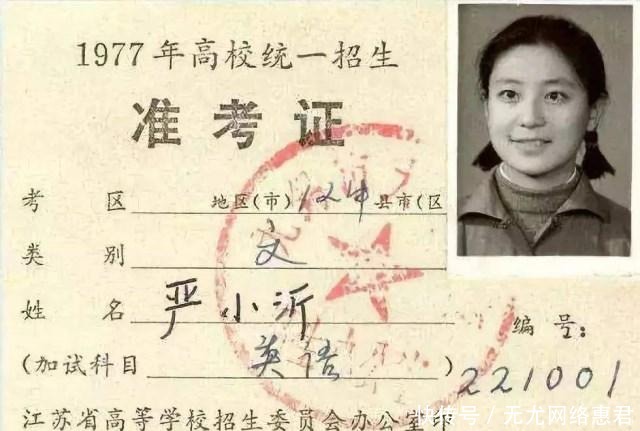 1977年高校统一招生
准考证
考 区 地区(市) 12中 县市(区
类 别 文
姓 名 严小沂
编 号:
(加试科目 英语 )
221001
江苏省高等学校招生委员会办公室印
快传号/无尤网络惠君